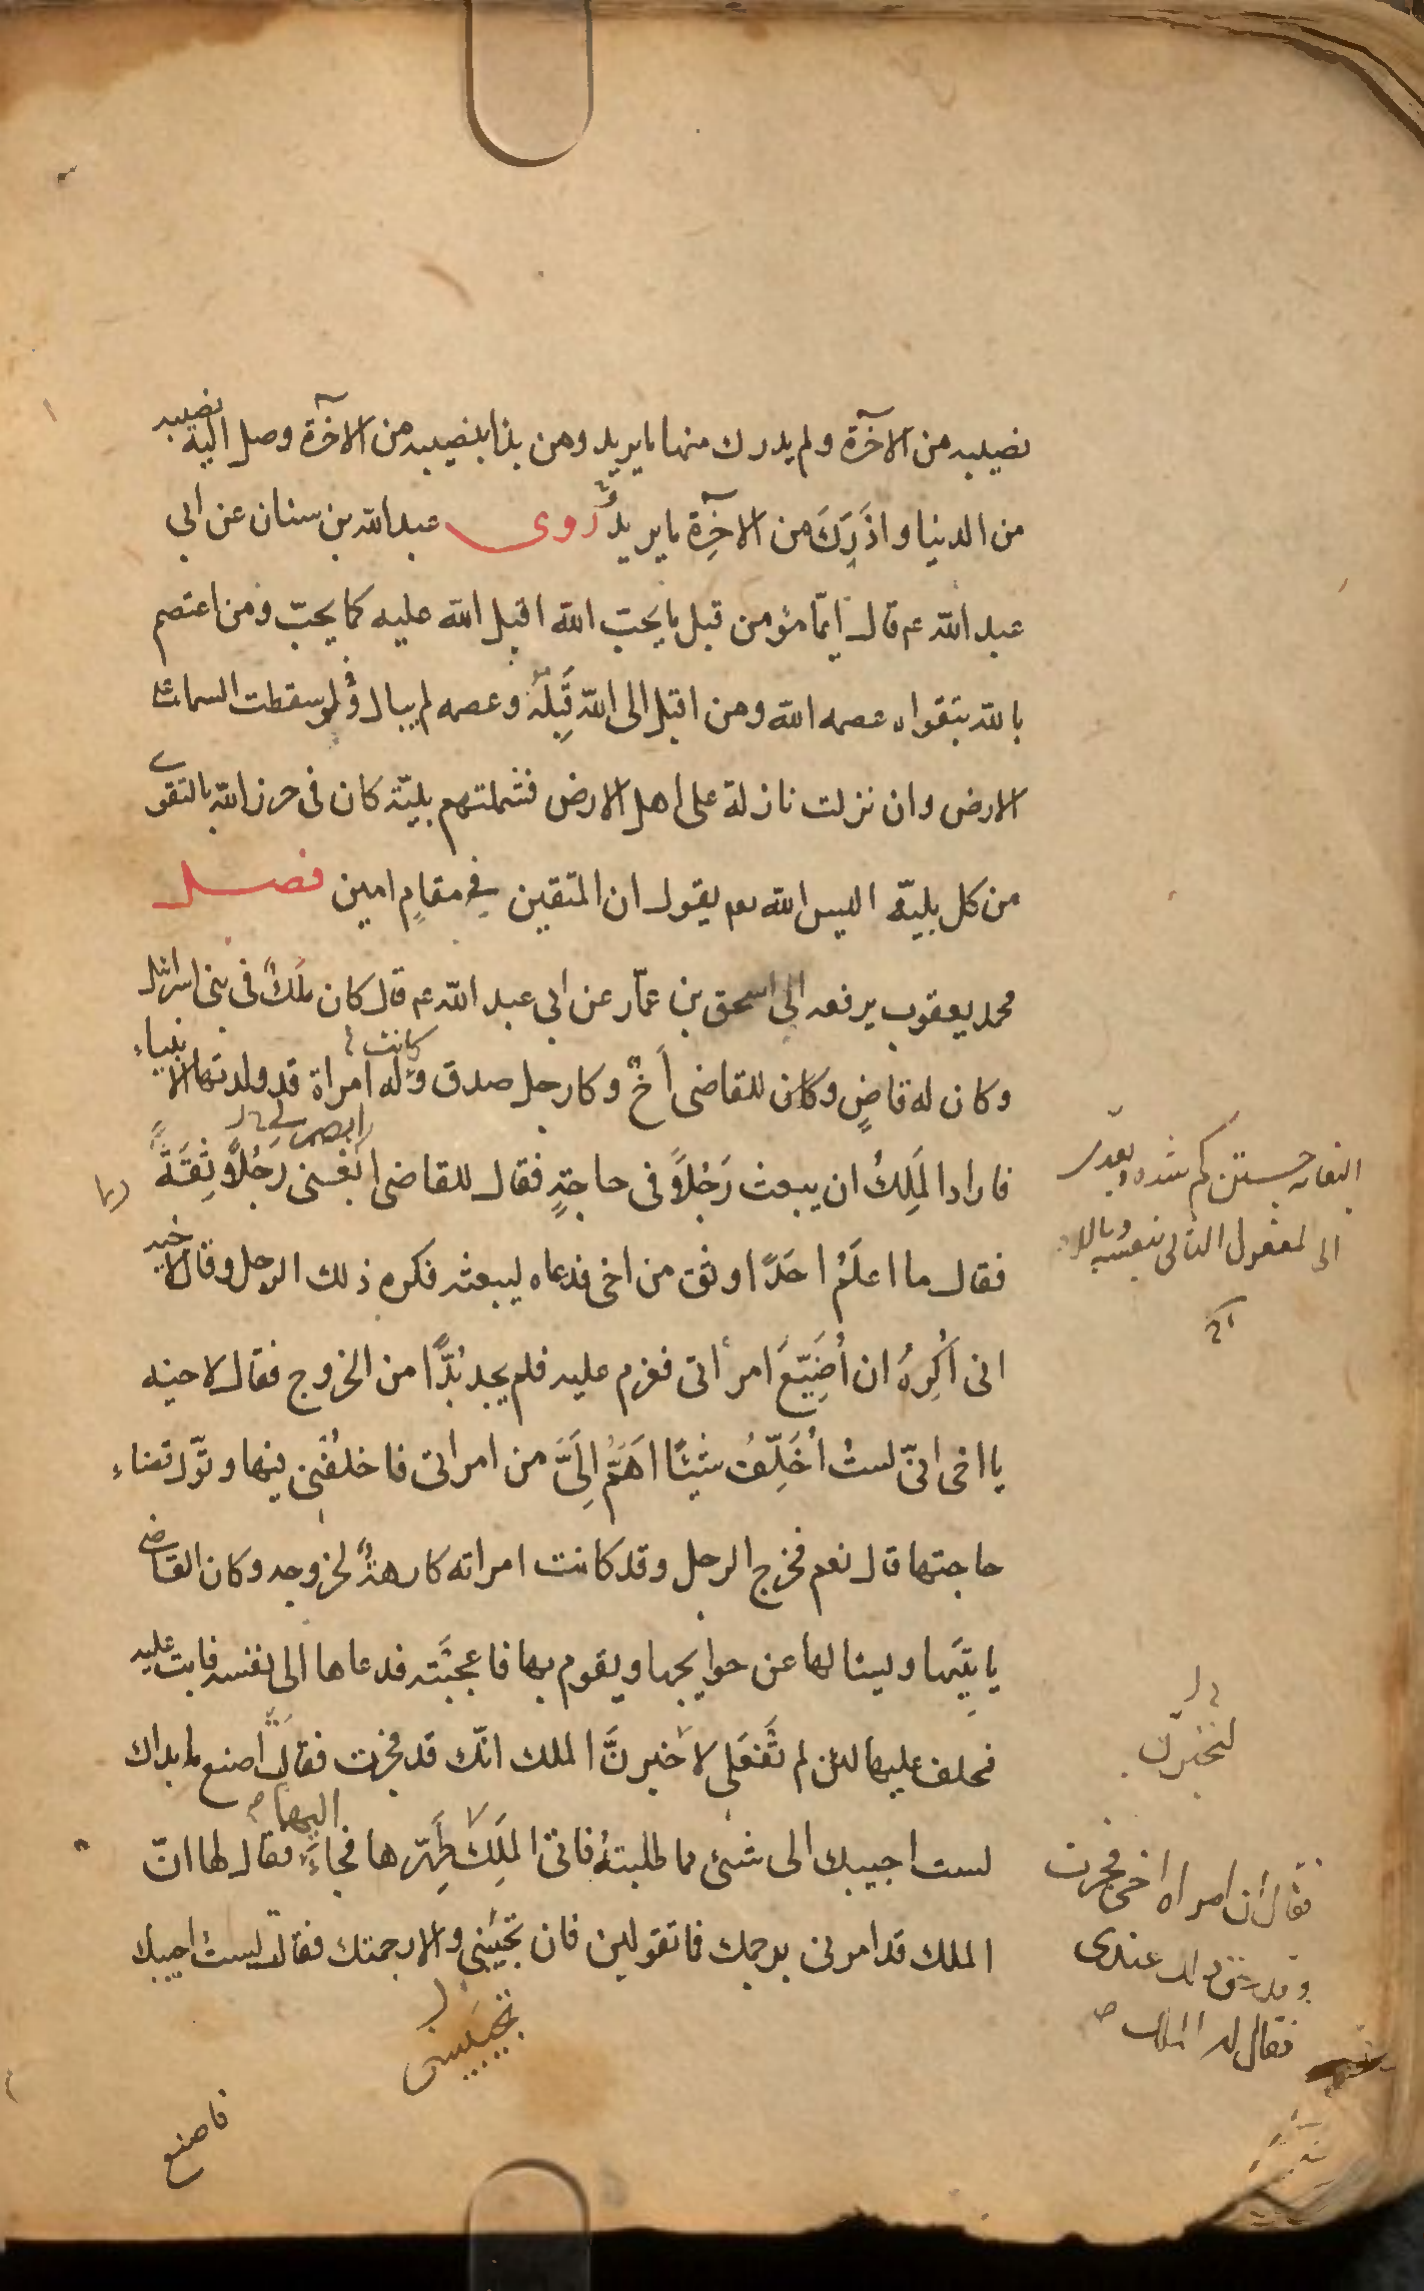 نصيبه من الآخرة ولم يدرك منها ما يريد ومن بدا بنصيبه من الآخرة وصل اليه نصيبه
من الدنيا و ادرك من الآخرة ما يريد روى عبد الله بن سنان عن ابي
عبد الله ع قال ايّما مؤمن قبل ما يحبّ الله اقبل الله عليه كما يحبّ ومن اعتصم
بالله بتقواه عصمه الله ومن اقبل الى الله قَبِلَهُ وعصمه لم يبال ولو سقطت السماء على
الارض وان نزلت نازلة على اهل الارض فشملتهم بليّة كان فى حرز الله بالتقوى
من كل بليّة اليس الله تع يقول ان المتقين في مقامٍ امين فصل
محمد يعقوب يرفعه الى اسحق بن عمّار عن ابى عبد الله ع قال كان ملكٌ فى بنى اسرائيل
وكان له قاضٍ وكان للقاضى اَخٌ وكان رجل صدق وله كانت امراة قد ولدتها الانبياء
فاراد المَلِكُ ان يبعث رَجُلاً فى حاجةٍ فقال للقاضى ابغنى رَجُلاً ثِقَةً
فقال ما اعلَمُ احَدًا اوثق من اخى فدعاه ليبعثه فكره ذلك الرجل وقال لاخيه
انى اَكْرَهُ ان اُضَيِّعَ امرأتى فعزم عليه فلم يجد بُدًّا من الخروج فقال لاخيه
يا اخى انّى لستُ اُخَلِّفُ شيئًا اَهَمَّ اِلَىَّ من امراتى فاخلُفْنى فيها وتَوَلَّ قضاء
حاجتها قال نعم فخرج الرجل وقد كانت امراته كارهةً لخروجه وكان القاضى
ياتِيَها ويسئالها عن حوايجها ويقوم بها فاعجبَتْه فدعاها الى نفسه فابت عليه
فحلف عليها لئن لم تَفْعَلى لاخبرنَّ الملك انّك قد فجرت فقالت اصنع ما بدا لك
لست اجيبك الى شئ مما طلبتَهُ فاتى المَلِكَ فجاء اليها فقال لها انّ
الملك قد امرنى برجمك فما تقولين فان تجيبنى والا رجمتك فقالت لست اجيبك
فاصنع
تجيبينى
لتخبرن
فقال ان امراة اخى فجرت
وقد حق ذلك عندى
فقال له الملك